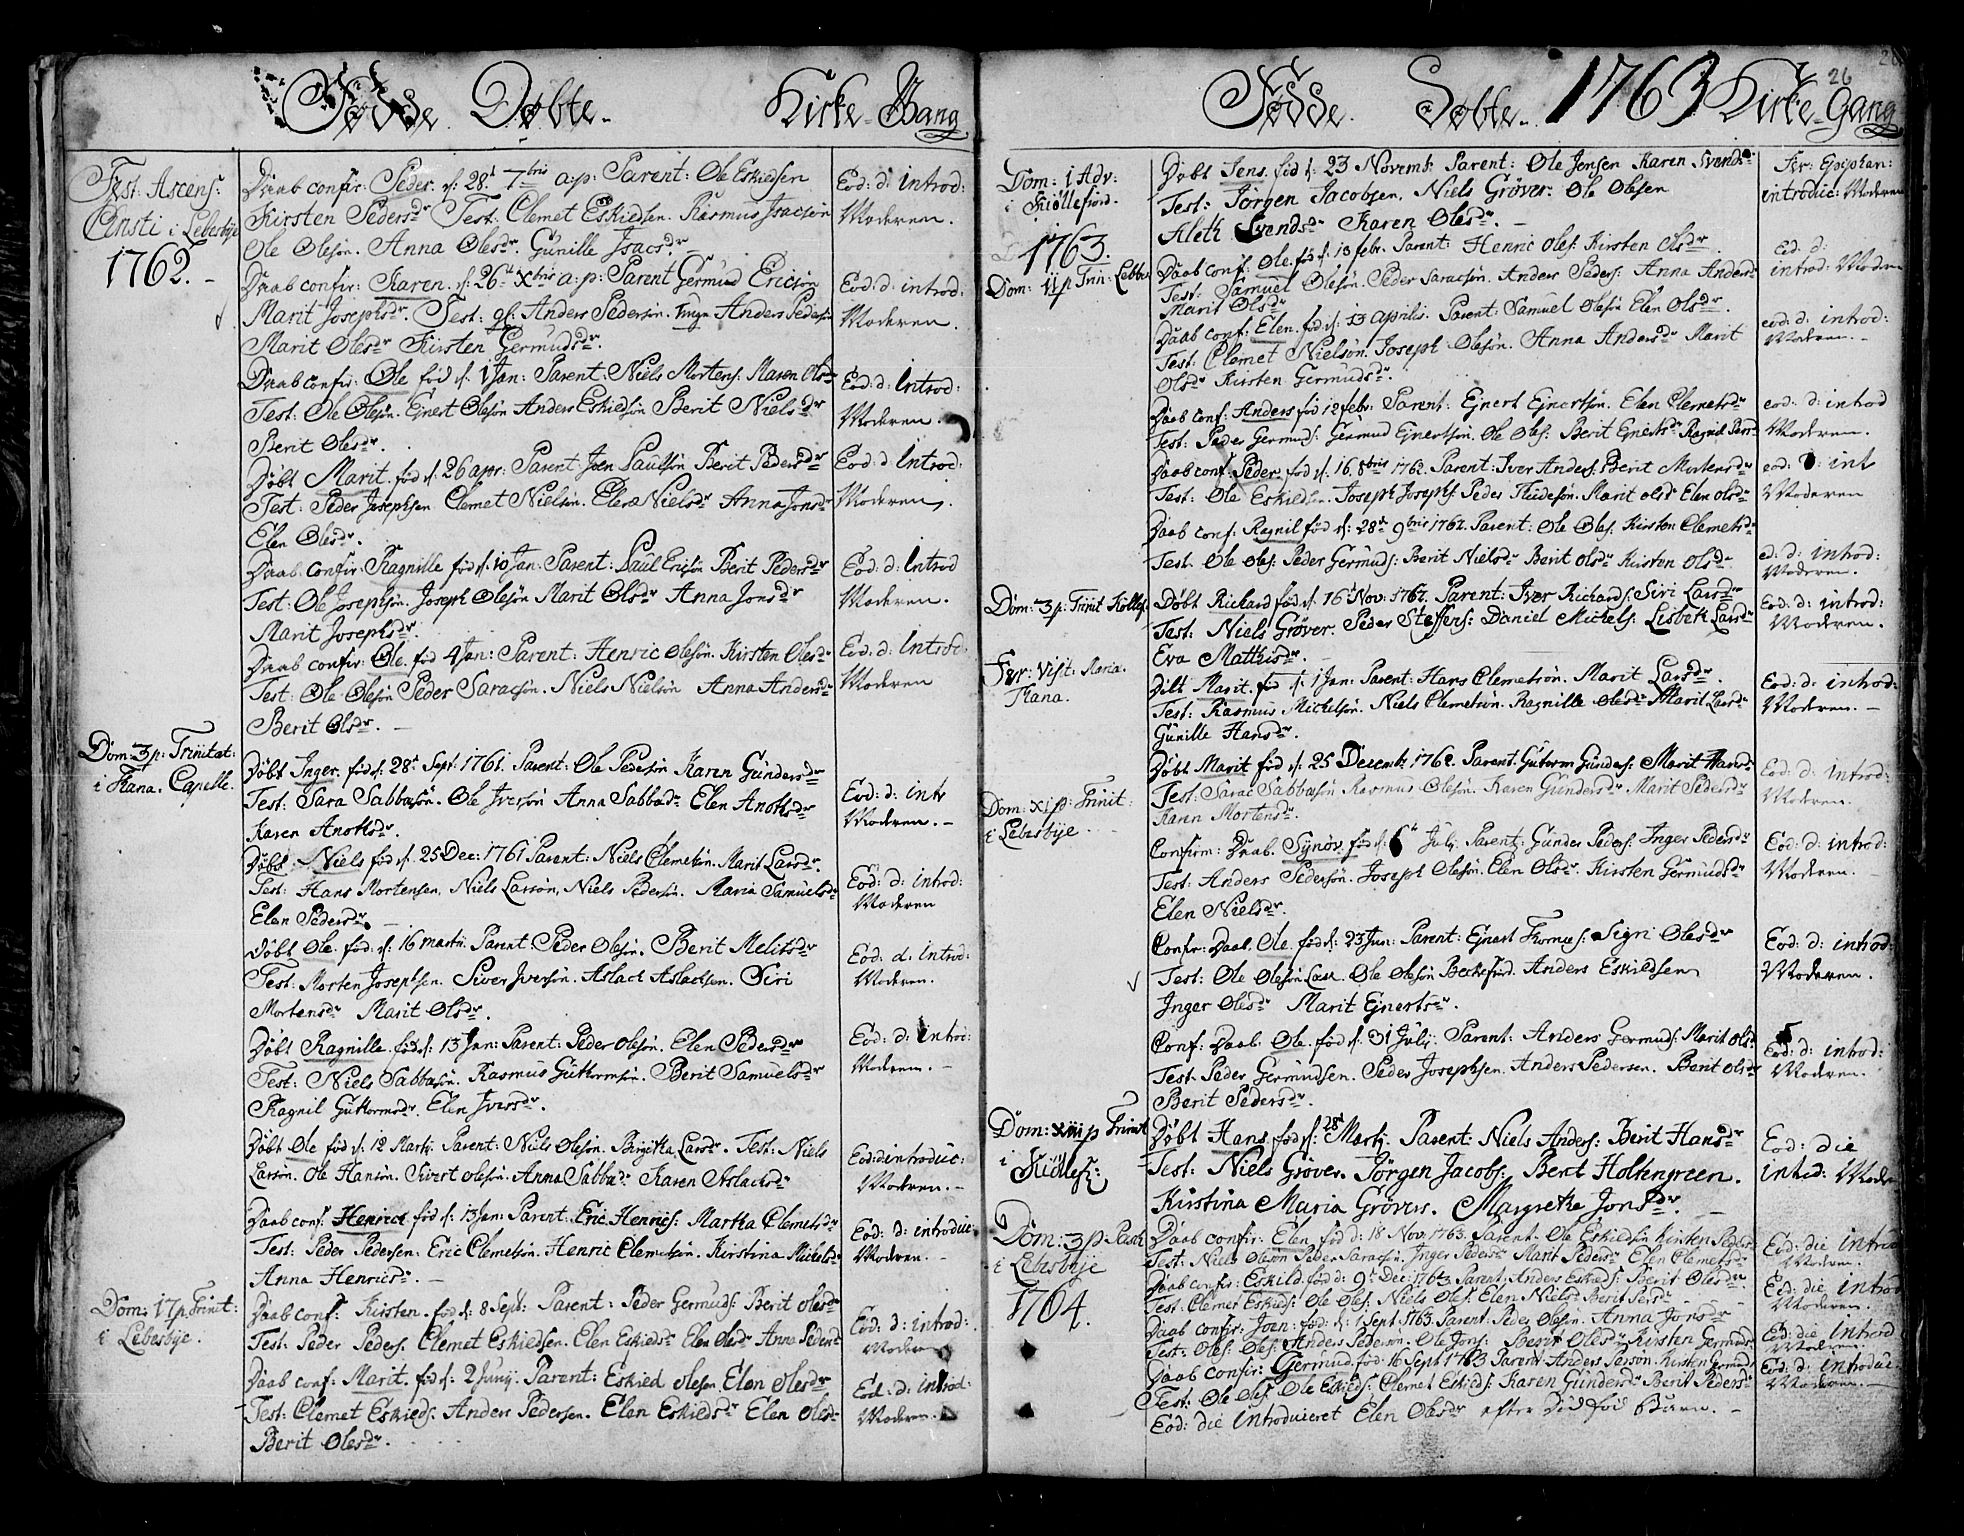 Fødde Døbte. Kirke-Gang
Fest: Ascens:
Christi i Lebesbye
1762. -
Daab confir: Peder. d: 28t 7bris a: p: Parent: Ole Eskiedsen
Kirsten Pedersdr Test: Clemet Eskiedsen. Rasmus Isacsøn
Ole Olesøn. Anna Olesdr. Gunille Isacsdr
Eod: d: introd:
Moderen.
Daab confir: Karen. d: 26t Xbris a: p: Parent Germund Ericsøn
Marit Josephsdr. Test: gl: Anders Pedersøn. Unge Anders Pedersøn
Marit Olesdr Kirsten Germundsdr.
Eod: d: introd:
Moderen.
Daab confir: Ole fød d. 1 Jan: Parent: Niels Mortens: Maren Olsdr
Test: Ole Olesøn. Ejnert Olesøn Anders Eskiedsøn Berit Nielsdr
Berit Olesdr.
Eod: d: Introd:
Moderen.
Døbt Marit. fød d. 26 apr: Parent Joen Paulsøn Berit Pedersdr
Test: Peder Josephsen. Clemet Nielsøn. Elen Nielsdr Anna Jonsdr
Elen Olesdr.
Eod: d Introd:
Moderen.
Daab. confir: Ragnille fød d: 10 Jan: Parent: Paul Ericsøn Berit Pedersdr
Test: Ole Josephsøn. Joseph Olesøn Marit Olsdr Anna Jonsdr
Marit Josephsdr.
Eod: d: Introd
Moderen.
Daab confir: Ole. fød 4 Jan: Parent: Henric Olesøn. Kirsten Olesdr
Test: Ole Olesøn Peder Saracsøn. Niels Nielsøn Anna Andersdr
Berit Olsdr. -
Eod: d: Introd:
Moderen
Dom: 3 p: Trinitat:
i Kana. Capelle.
Døbt Inger. fød d: 28t Sept: 1761. Parent: Ole Pedersøn Karen Gundersdr
Test: Sara Sabbasøn. Ole Iversøn Anna Sabbadr Elen Anothsdr
Karen Anothsdr.
Eod: d: intr
Moderen. -
Døbt Niels fød d. 25 Dec: 1761 Parent: Niels Clemetsøn. Marit Larsdr.
Test: Hans Mortensen, Niels Larsøn, Niels Pedersøn. Maria Samuelsdr
Elen Pedersdr. -
Eod: d: introd:
Moderen
Døbt Ole. fød. d. 16 martii. Parent: Peder Olesøn. Berit Melitsdr
Test: Morten Josephsen. Siver Iversøn. Aslack Aslachsen. Siri
Mortensdr Marit Olsdr.
Eod: d. Introd:
Moderen.
Døbt Ragnille. fød d: 13 Jan: Parent: Peder Olesøn. Elen Pedersdr
Test: Niels Sabbasøn. Rasmus Guttormsøn. Berit Samuelsdr
Ragnil Guttormsdr. Elen Iversdr.
Eod: d: introd:
Moderen. -
Døbt Ole fød d: 12 Marti: Parent: Niels Olesøn. Birgitha Larsdr. Test: Niels
Larsøn. Ole Hansøn. Sivert Olesøn. Anna Sabbadr Karen Aslacksdr
Eod: d introduc:
Moderen. -
Daab conf. Henrich fød d: 13 Jan: Parent: Eric Henrics: Martha Clemetsdr
Test: Peder Pedersen: Eric Clemetsøn. Henric Clemetsøn. Kirstina Mickelsdr
Anna Henricsdr. -
Eod: d: introduc:
Moderen. -
Dom: 17 p. Trinit:
i Lebesbye.
Daab conf: Kirsten. fød d: 8 Sept: Parent: Peder Germuds: Berit Olesdr
Test: Peder Peders: Clemet Eskiedsen. Elen Eskiedsdr Elen Olsdr Anna Pedersdr
Eod: d: introd:
Moderen
Daab conf: Marit. fød d: 2 Junij: Parent: Eskied Olesen Elen Olesdr
Test: Clemet Eskieds: Anders Pedersen. Elen Eskiedsdr Elen Olesdr
Berit Olesdr.
Eod: d: introd:
Moderen.
Fødde. Døbte. 1763 Kirke-Gang
26
Dom: 1 Adv:
i Kiøllefiord.
Døbt Jens. fød d: 23 Novemb: Parent: Ole Jensen Karen Svendsdr
Test: Jørgen Jacobsen, Niels Grøver. Ole Olesen
Aleth Svendsdr Karen Olesdr. -
Fer: Epiphan:
introduc: Moderen
1763.
Dom: 11 p Trin: Lebbe
Daab conf: Ole. fød d: 13 febr: Parent: Henric Oles: Kirsten Olsdr
Test: Samuel Olesøn. Peder Saracsøn. Anders Peders: Anna Andersdr
Marit Olsdr
Eod: d:
introd: Moderen
Daab conf: Elen. fød d: 13 aprilis. Parent: Samuel Olesøn Elen Olsdr.
Test: Clemet Nielsøn. Joseph Olesøn. Anna Andersdr Marit
Olsdr Kirsten Germudsdr.
eod: d: introd:
Moderen. -
Daab conf: Anders fød 12 febr: Parent: Ejnert Ejnertsøn. Elen Clemetsdr
Test: Peder Germuds: Germud Ejnertsøn. Ole Oles: Berit Ejnertsdr Ragnil Persdr
eod: d: introd
Moderen.
Daab conf: Peder. fød d. 16. 8bris 1762. Parent: Iver Anders: Berit Mortensdr
Test: Ole Eskiedsen. Joseph Josephs: Peder Fludesøn. Marit Olsdr Elen Olsdr
eod: d: int
Moderen
Daab conf: Ragnil fød d: 28t 9bris 1762. Parent: Ole Oles: Kirsten Clemetsdr
Test: Ole Oles: Peder Germuds: Berit Nielsdr Berit Olsdr Kirsten Olsdr
ed: d: introd:
Moderen.
Dom: 3 p: Trinit Kiøllef.
Døbt Richard fød d. 16 Nov: 1762. Parent: Iver Richards: Siri Larsdr.
Test: Niels Grøver. Peder Steffens: Daniel Mickels: Lisbeth Larsdr
Eva Matthisdr.
Eod: d: introd:
Moderen.
Fer: Visit: Maria.
Kana.
Døbt Marit. fød d. 1 Jan: Parent: Hans Clemetsøn. Marit Larsdr.
Test: Rasmus Mickelsøn. Niels Clemetsøn. Ragnille Olesdr Marit Larsdr
Gunille Hansdr.
Eod: d: introd:
Moderen. -
Døbt Marit fød d. 25 Decemb: 1762. Parent: Gutorm Gunders: Marit Hansdr
Test: Sarac Sabbasøn Rasmus Olesøn. Karen Gundersdr Marit Pedersdr
Karen Mortensdr.
Eod: d: introd:
Moderen.
Dom: XI p: Trinit:
i Lebesbye.
Confirm: Daab. Synøv. fød d: 6t Julij Parent: Gunder Peders: Inger Pedersdr
Test: Anders Pedersøn. Joseph Olesøn. Elen Olsdr. Kirsten Germudsdr
Elen Nielsdr.
Eod: d: introd:
Moderen. -
Confr: Daab. Ole. fød d: 23 Jun: Parent: Ejnart Thomas: Sigri Olesdr
Test: Ole Olesøn Lax. Ole Olesøn Beckefiord. Anders Eskildsen
Inger Olesdr Marit Ejnertsdr.
Eod: d: introd:
Moderen.
Conf: Daab. Ole. fød d. 31 Julij. Parent: Anders Germuds: Marit Olsdr
Test: Peder Germudsen. Peder Josephsen. Anders Pedersen. Berit Olsdr
Berit Pedersdr.
Eod: d: introd:
Moderen.
Dom: XIII p Trinit
i Kiøllef:
Døbt Hans. fød d: 28t Martj. Parent: Niels Anders: Berit Hansdr
Test: Niels Grøver. Jørgen Jacobs: Bent Holtengreen.
Kirstina Maria Grøvers. Margretha Jonsdr. -
Eod: die
introd: Moderen
Dom: 3 p Pasch
i Lebesbye
1764.
Daab confir: Elen. fød d: 18 Nov: 1763. Parent: Ole Eskildsen Kirsten Pedersdr
Test: Niels Olesøn Peder Saracsøn. Inger Pedersdr Marit Pedersdr Elen Clemetsdr
Eod: die introd
Moderen.
Daab confir: Eskild. fød d: 9t Dec: 1763 Parent: Anders Eskeds: Berit Olesdr.
Test: Clemet Eskieds: Ole Oles: Niels Oles: Elen Nielsdr Berit Persdr
Eod: die introd
Moderen.
Daab confir: Joen: fød: d: 1 Sept: 1763 Parent: Peder Olesøn. Anna Jonsdr
Test: Ole: Oles: Anders Pedersøn. Ole Jons: Berit Olesdr Kirsten Germuds
Eod: die Introd
Moderen.
Daab confir: Germud. fød: 16 Sept 1763 Parent: Anders Persøn. Kirsten Germuds
Test: Ole Oles: Ole Eskieds: Clemet Eskieds: Karen Gundersdr Berit Pedersdr
Eod: d: introduc:
Moderen. -
Eod: die Introduceret Elen Olesdr efter død fød Barn. -